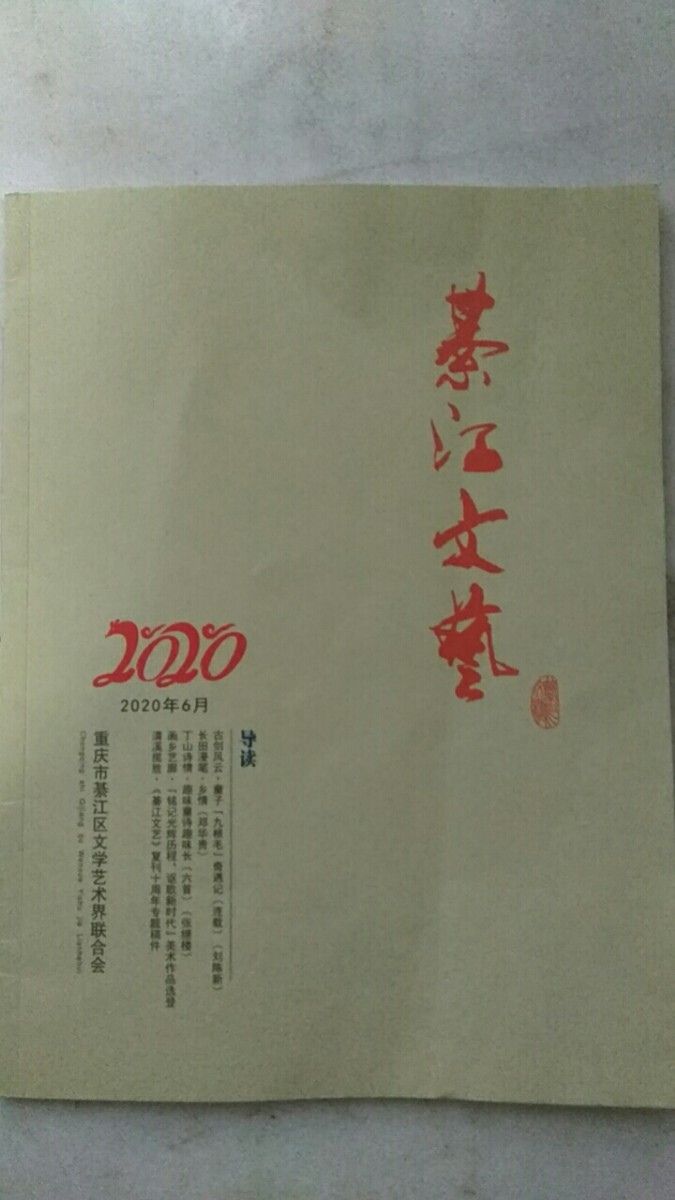 綦江文藝
2020
2020年6月
导读
古剑风云·童子「九根毛」奇遇记（连载）（刘隆新）
长田漫笔·乡情（邓华贵）
丁山诗情·趣味童诗趣味长（六首）（张继楼）
画乡艺廊·「铭记光辉历程，讴歌新时代」美术作品选登
清溪揽胜·《綦江文艺》复刊十周年专题稿件
重庆市綦江区文学艺术界联合会
Chongqing shi Qijiang Qu Wenxue Yishu jie Lianhehui